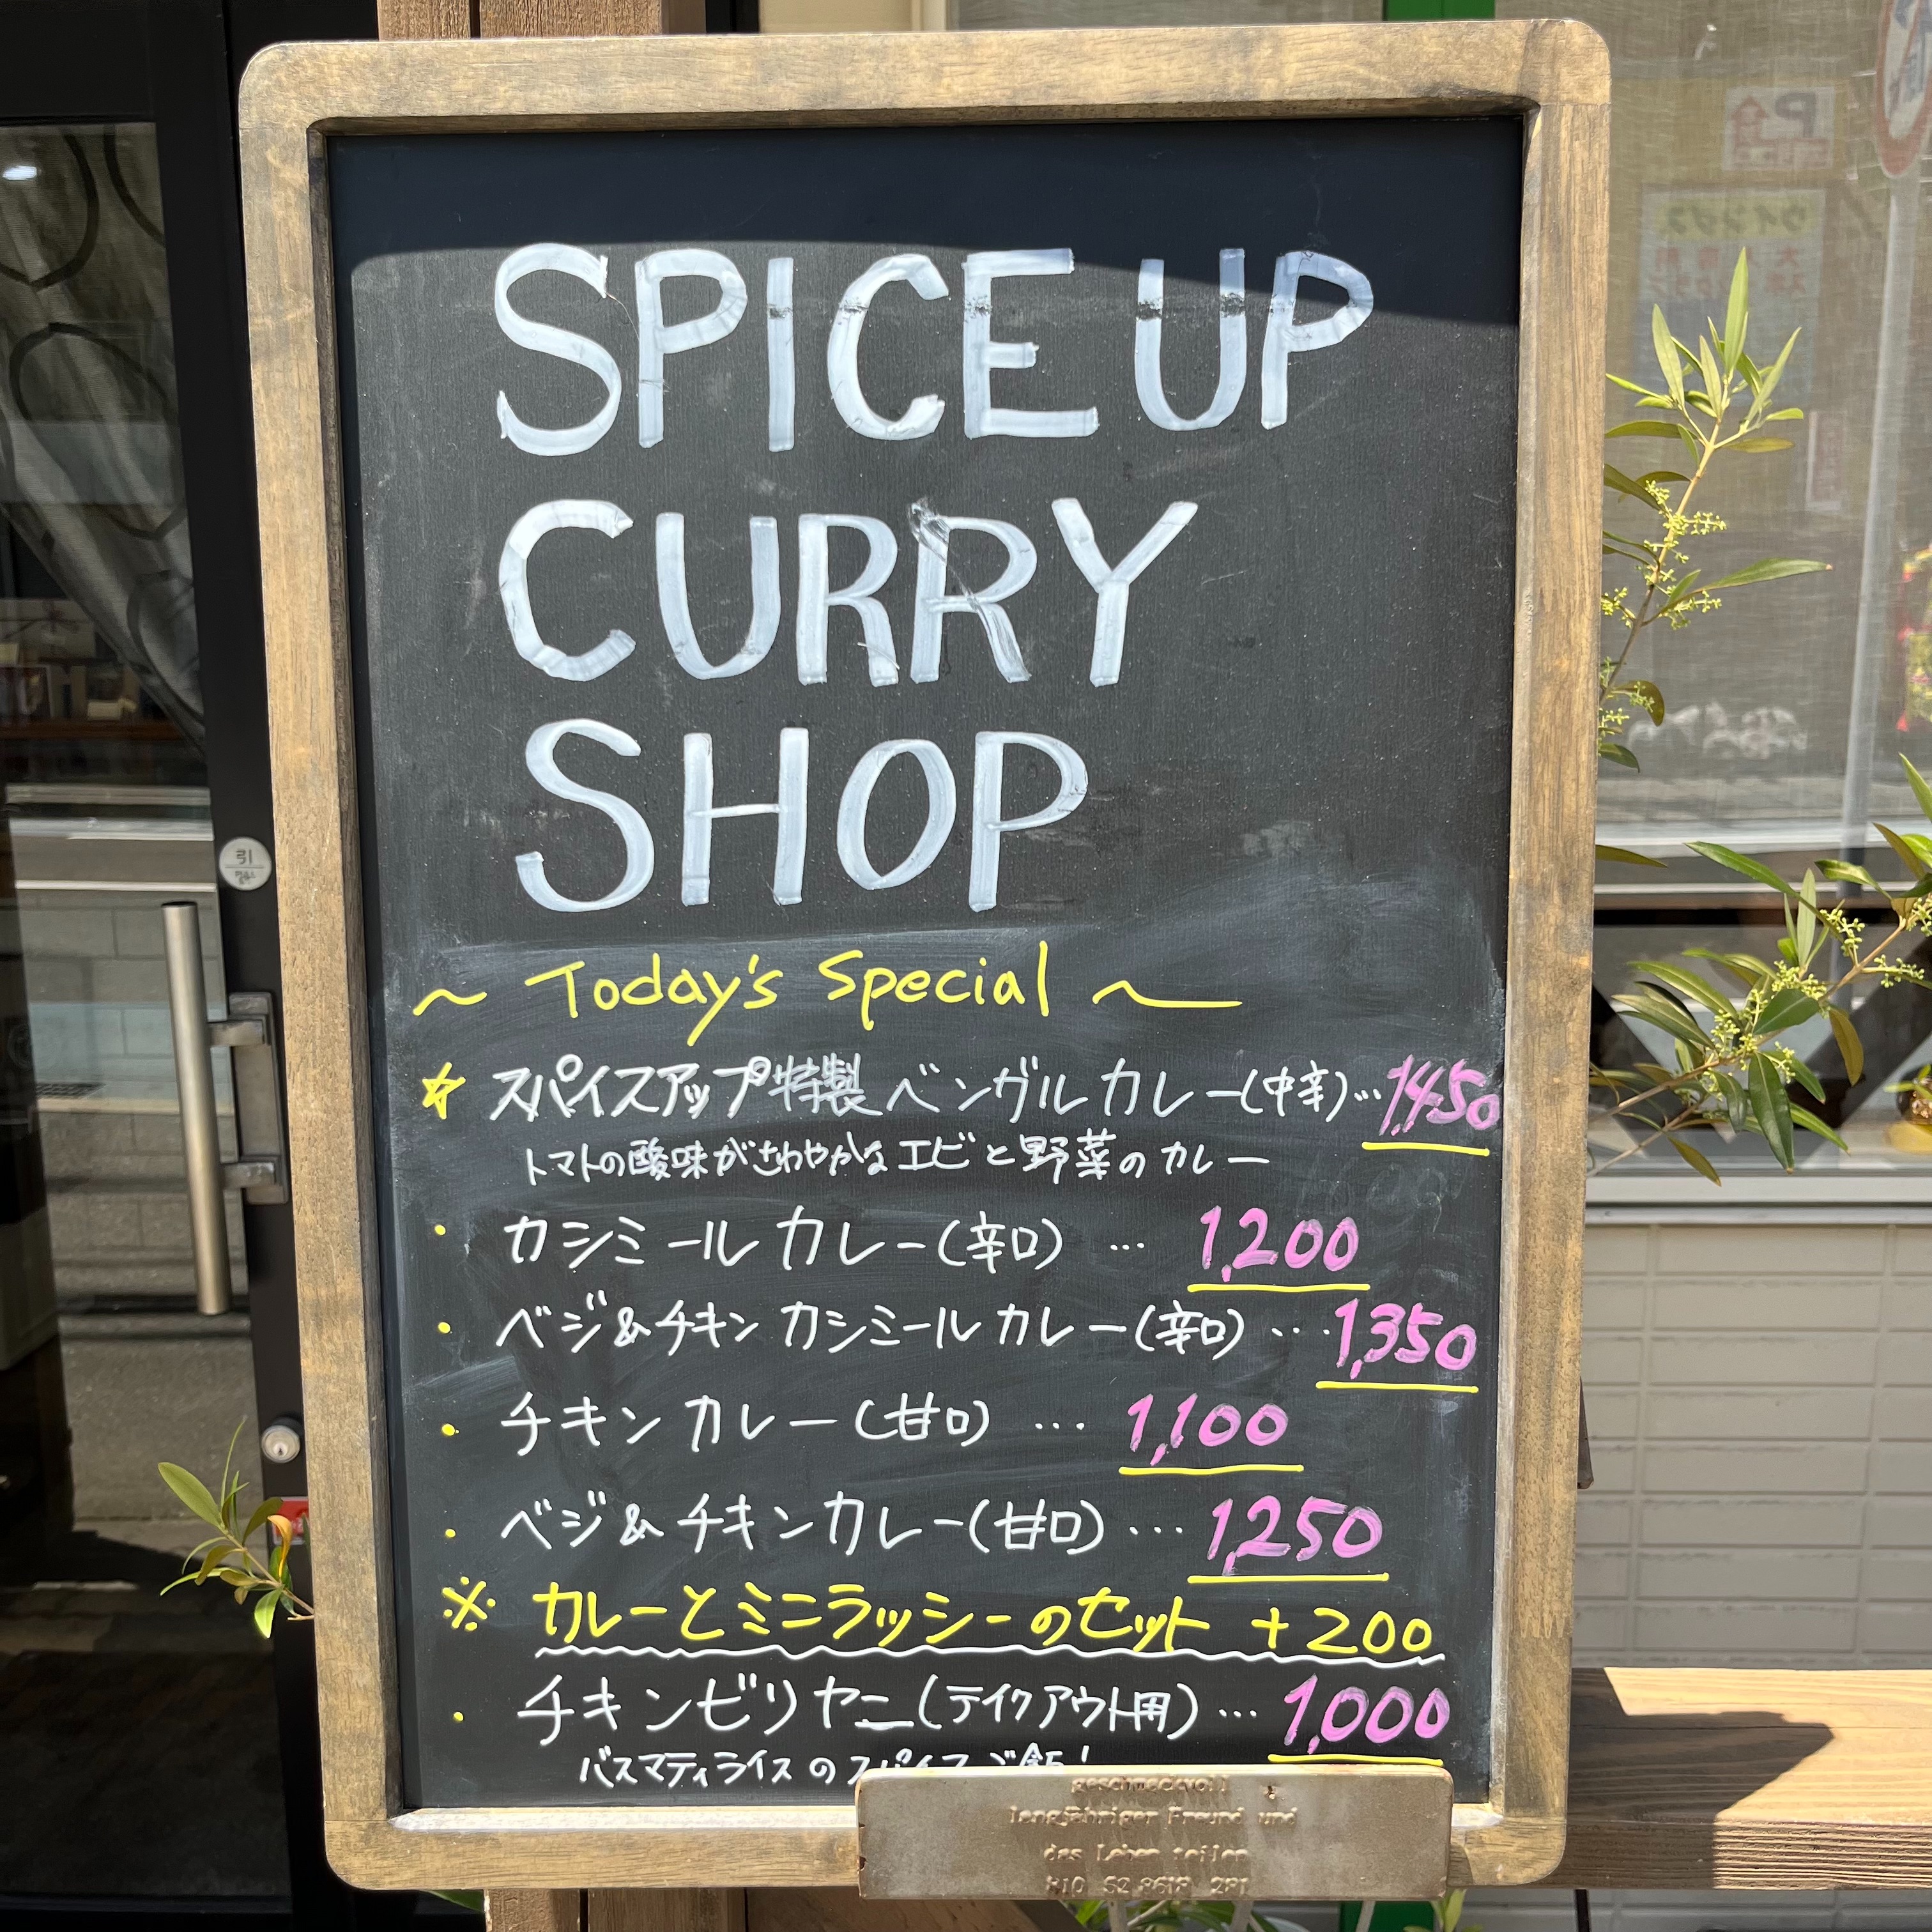 SPICE UP
CURRY
SHOP
~ Today's Special ~
☆ スパイスアップ特製 ベンガルカレー(中辛)…1,450
トマトの酸味がさわやかな エビと野菜のカレー
・ カシミールカレー(辛口) … 1,200
・ ベジ&チキン カシミールカレー(辛口) …1,350
・ チキンカレー(甘口) … 1,100
・ ベジ&チキンカレー(甘口) … 1,250
※ カレーとミニラッシーのセット +200
・ チキンビリヤニ(テイクアウト用) … 1,000
バスマティライスのスパイスご飯!
geschmackvoll
langjähriger Freund und
das Leben teilen
引